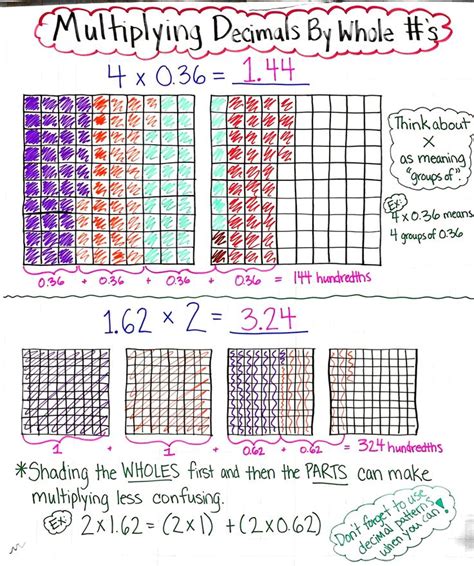 Multiplying Decimals By Whole #'s
4 x 0.36 = 1.44
Think about
x
as meaning
"groups of".
Ex:
4 x 0.36 means
4 groups of 0.36
0.36 + 0.36 + 0.36 + 0.36 = 144 hundredths
1.62 x 2 = 3.24
1 + 1 + 0.62 + 0.62 = 324 hundredths
*Shading the WHOLES first and then the PARTS can make
multiplying less confusing.
Ex: 2 x 1.62 = (2x1) + (2x0.62)
Don't forget to use
decimal patterns
when you can!